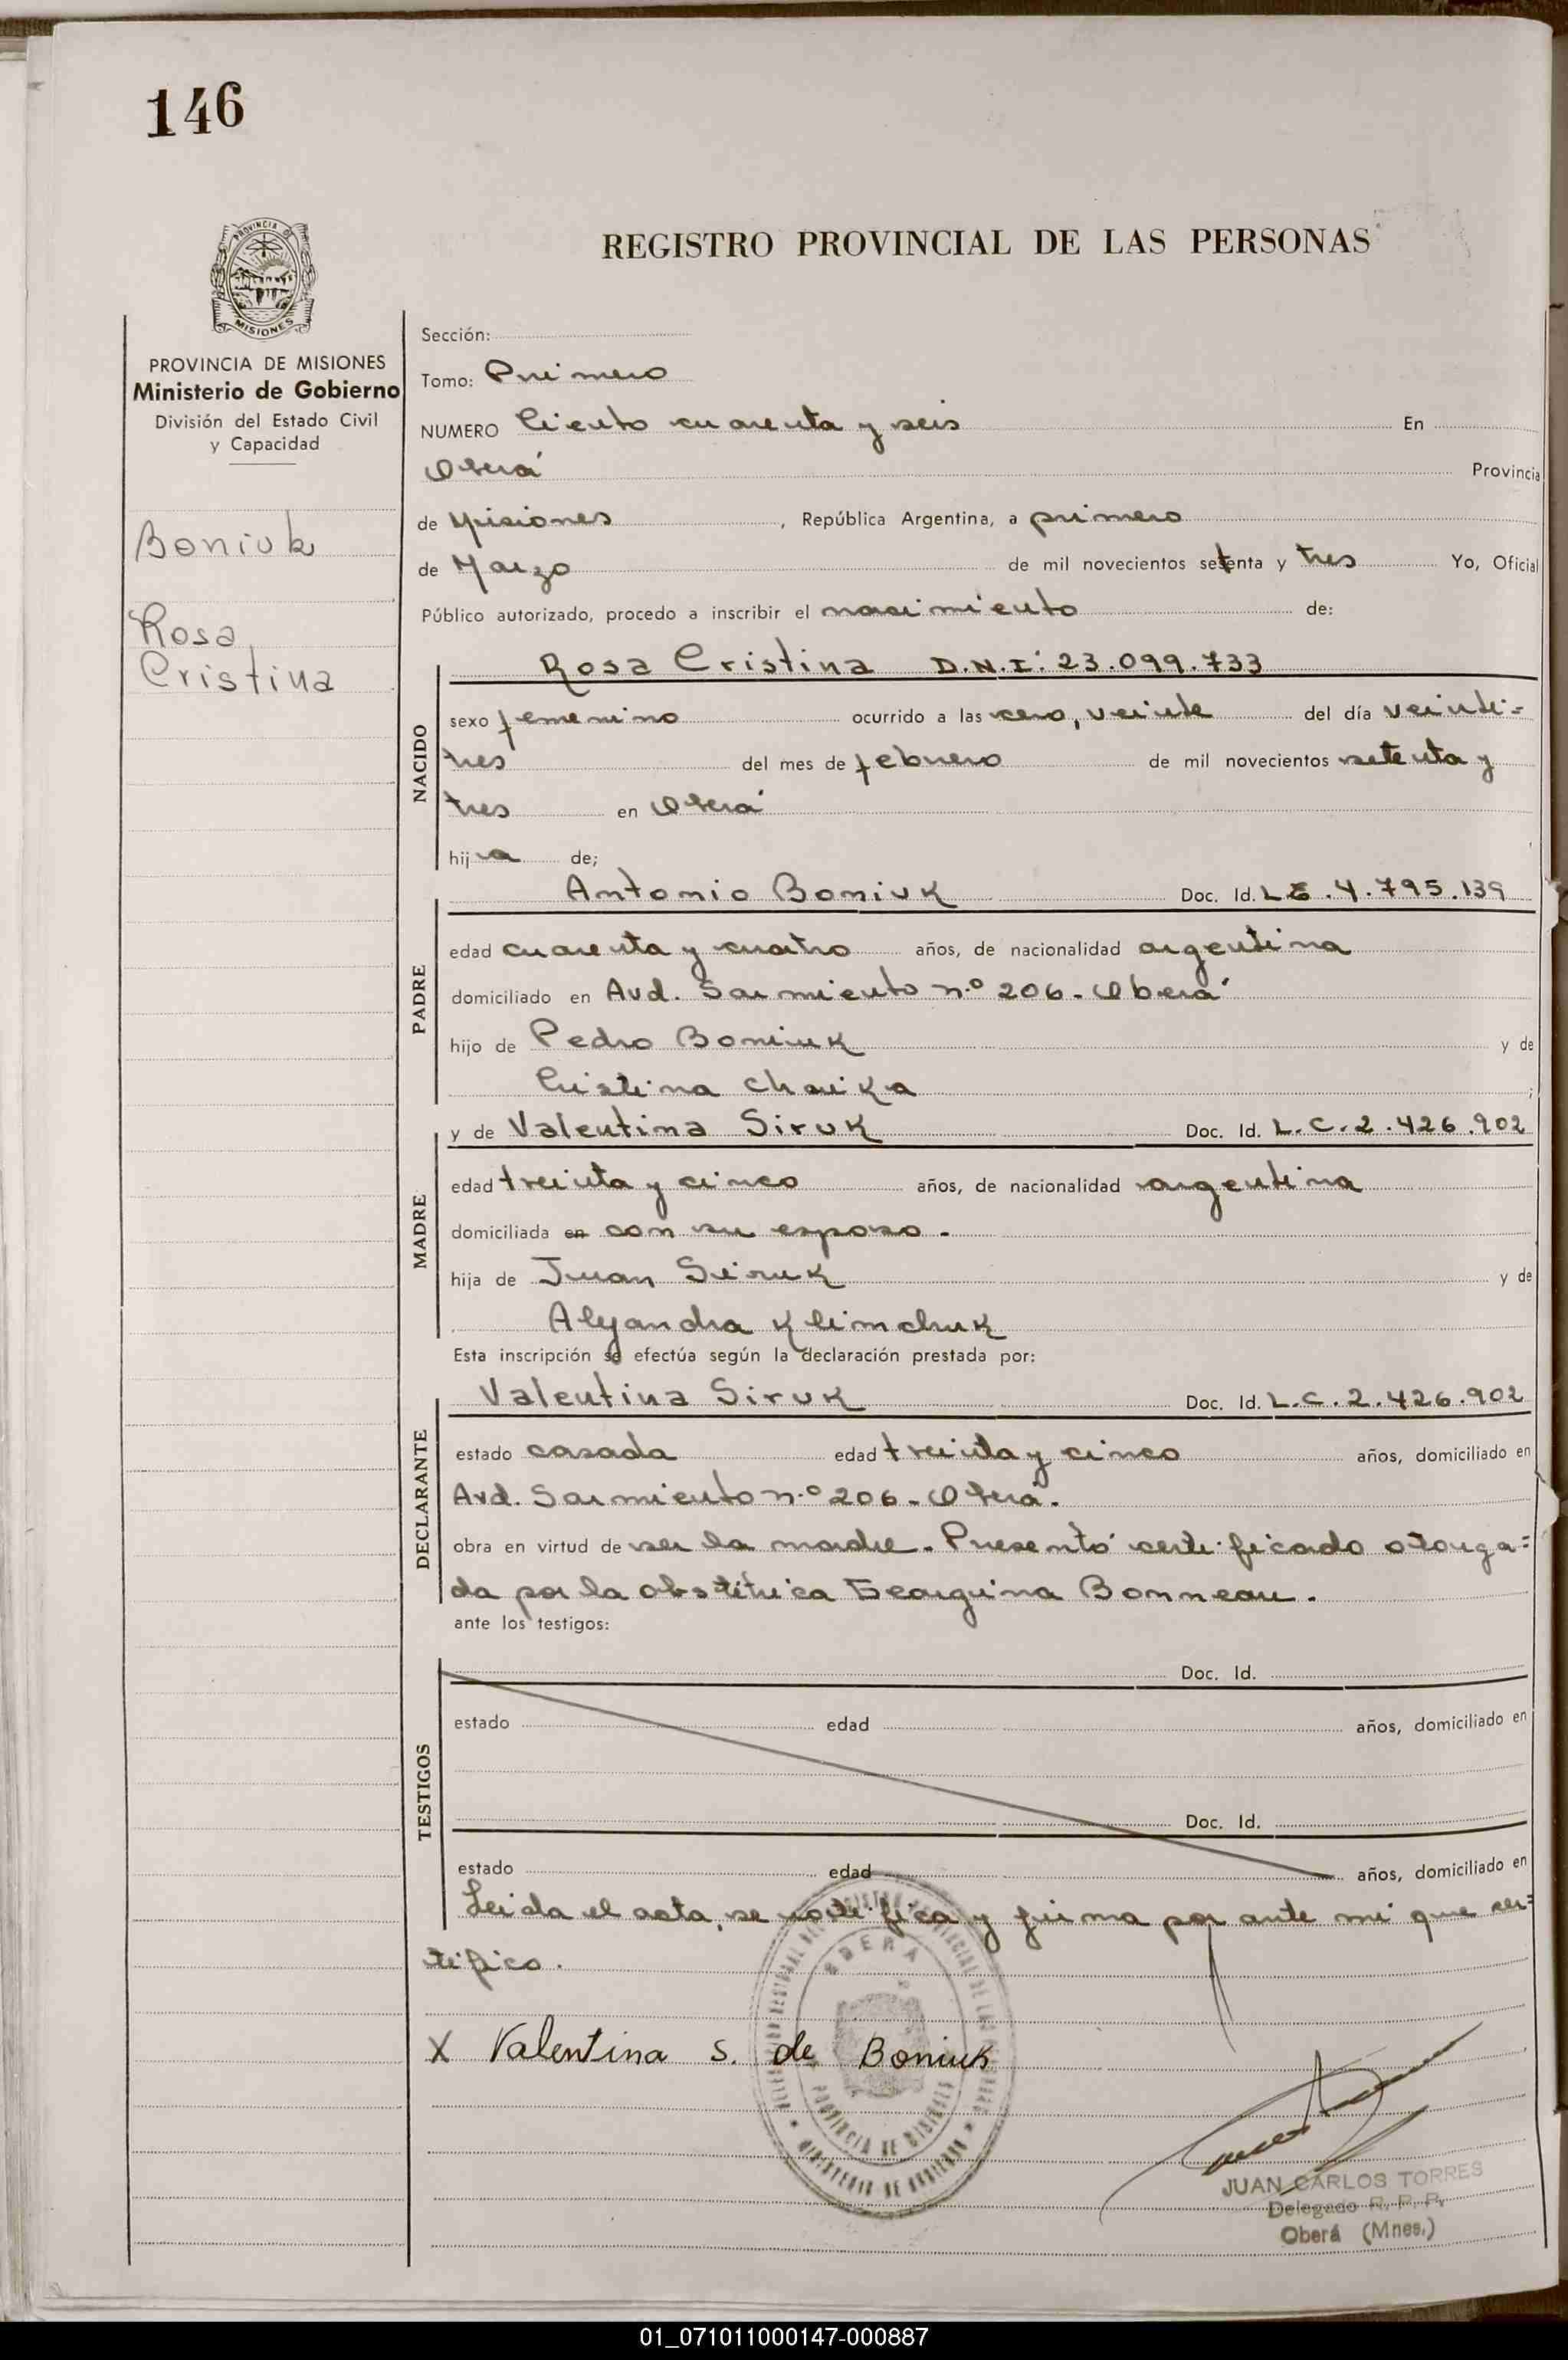 146
PROVINCIA DE
MISIONES
REGISTRO PROVINCIAL DE LAS PERSONAS
PROVINCIA DE MISIONES
Ministerio de Gobierno
División del Estado Civil
y Capacidad
Boniuk
Rosa
Cristina
Sección:
Tomo: Primero
NUMERO Ciento cuarenta y seis En
Oberá Provincia
de Misiones , República Argentina, a primero
de Marzo de mil novecientos setenta y tres Yo, Oficial
Público autorizado, procedo a inscribir el nacimiento de:
NACIDO
Rosa Cristina D.N.I: 23.099.733
sexo femenino ocurrido a las cero, veinte del día veinti=
tres del mes de febrero de mil novecientos setenta y
tres en Oberá
hija de;
PADRE
Antonio Boniuk Doc. Id. L.E. 4.795.139
edad cuarenta y cuatro años, de nacionalidad argentina
domiciliado en Avd. Sarmiento n.º 206. Oberá
hijo de Pedro Boniuk y de
Cristina Chaika ;
MADRE
y de Valentina Siruk Doc. Id. L.C. 2.426.902
edad treinta y cinco años, de nacionalidad argentina
domiciliada en con su esposo.
hija de Juan Siruk y de
Alejandra Klimchuk
Esta inscripción se efectúa según la declaración prestada por:
DECLARANTE
Valentina Siruk Doc. Id. L.C. 2.426.902
estado casada edad treinta y cinco años, domiciliado en
Avd. Sarmiento n.º 206. Oberá.
obra en virtud de ser la madre. Presentó certificado otorga=
da por la obstétrica Georgina Bonneau.
ante los testigos:
TESTIGOS
Doc. Id.
estado edad años, domiciliado en
Doc. Id.
estado edad años, domiciliado en
Leida el acta, se notifica y firma por ante mi que cer=
tifico.
OBERA
PROVINCIA DE MISIONES
MINISTERIO DE GOBIERNO
X Valentina S. de Boniuk
JUAN CARLOS TORRES
Delegado R. P. P.
Oberá (Mnes.)
01_071011000147-000887